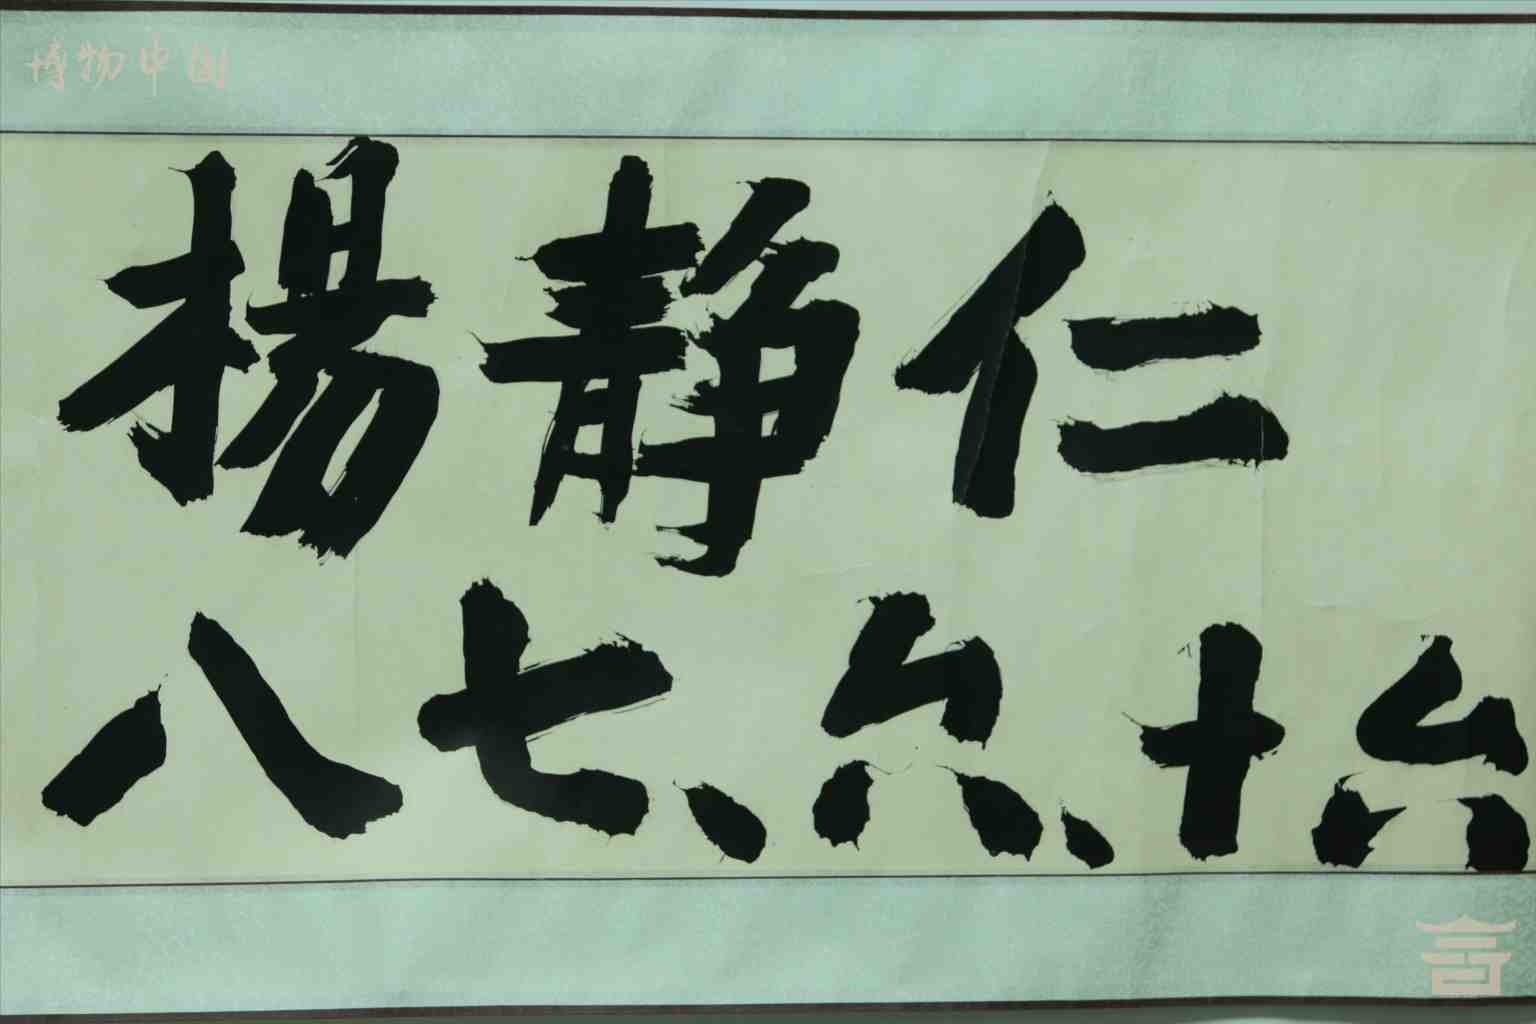 博物中国
揚静仁
八七、六、十六